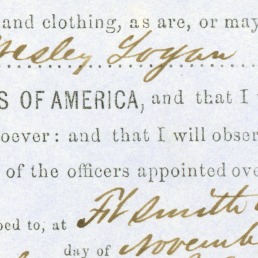 and clothing, as are, or may
Wesley Logan
S OF AMERICA, and that I
oever: and that I will obser
of the officers appointed ove
bed to, at Ft Smith
day of Novemb